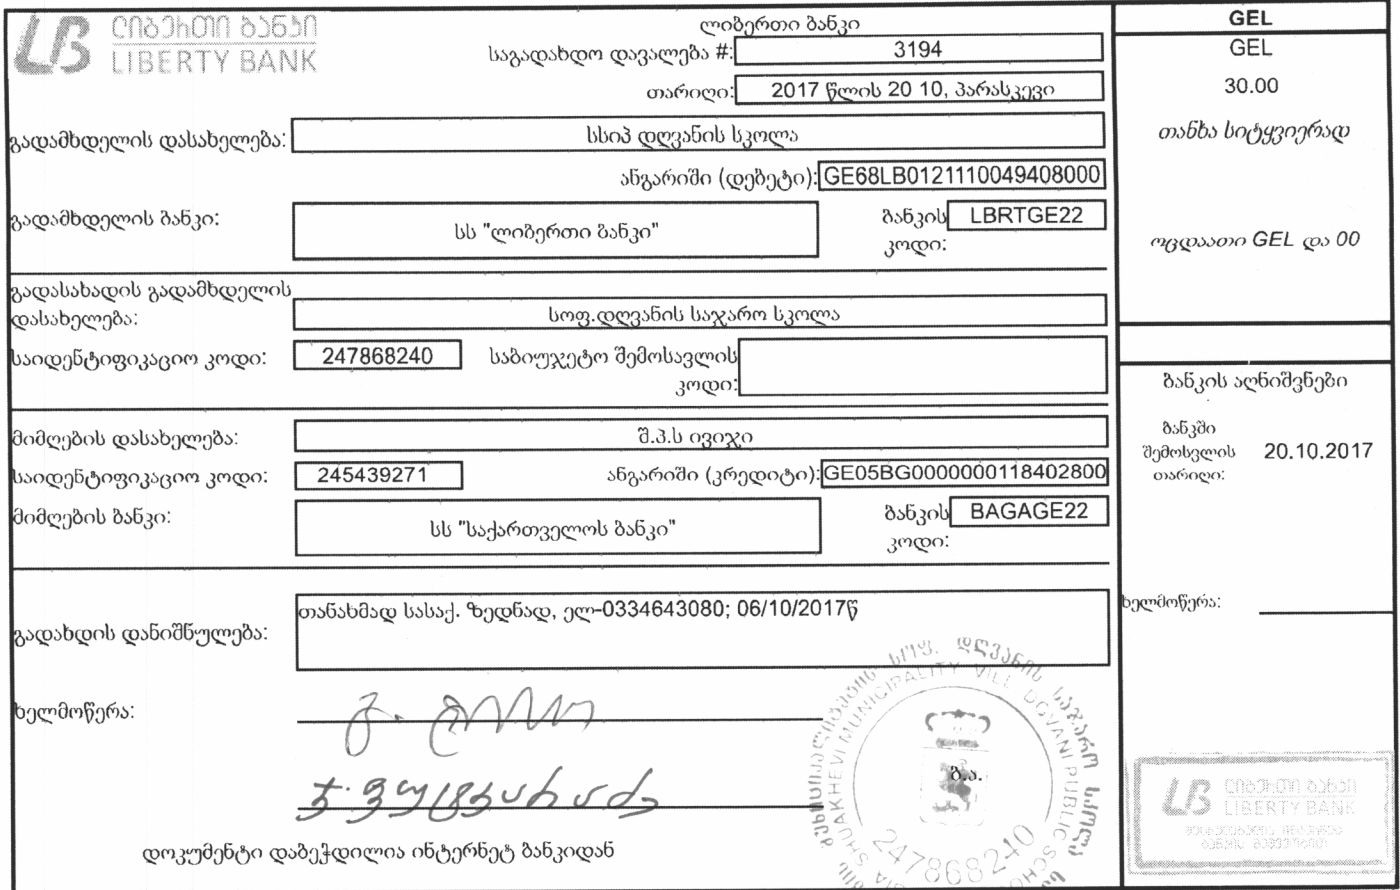 ლიბერთი ბანკი
LIBERTY BANK
ლიბერთი ბანკი
საგადახდო დავალება #: 3194
თარიღი: 2017 წლის 20 10, პარასკევი
გადამხდელის დასახელება: სსიპ დღვანის სკოლა
ანგარიში (დებეტი): GE68LB0121110049408000
გადამხდელის ბანკი: სს "ლიბერთი ბანკი" ბანკის კოდი: LBRTGE22
გადასახადის გადამხდელის
დასახელება: სოფ.დღვანის საჯარო სკოლა
საიდენტიფიკაციო კოდი: 247868240 საბიუჯეტო შემოსავლის
კოდი:
მიმღების დასახელება: შ.პ.ს ივიჯი
საიდენტიფიკაციო კოდი: 245439271 ანგარიში (კრედიტი): GE05BG0000000118402800
მიმღების ბანკი: სს "საქართველოს ბანკი" ბანკის კოდი: BAGAGE22
გადახდის დანიშნულება: თანახმად სასაქ. ზედნად, ელ-0334643080; 06/10/2017წ
ხელმოწერა:
ბ.ა.
SHUAKHEVI MUNICIPALITY VILL DGVANI PUBLIC SCHOOL
სოფ. დღვანის საჯარო სკოლა
247868240
დოკუმენტი დაბეჭდილია ინტერნეტ ბანკიდან
GEL
GEL
30.00
თანხა სიტყვიერად
ოცდაათი GEL და 00
ბანკის აღნიშვნები
ბანკში
შემოსვლის 20.10.2017
თარიღი:
ხელმოწერა:
ლიბერთი ბანკი
LIBERTY BANK